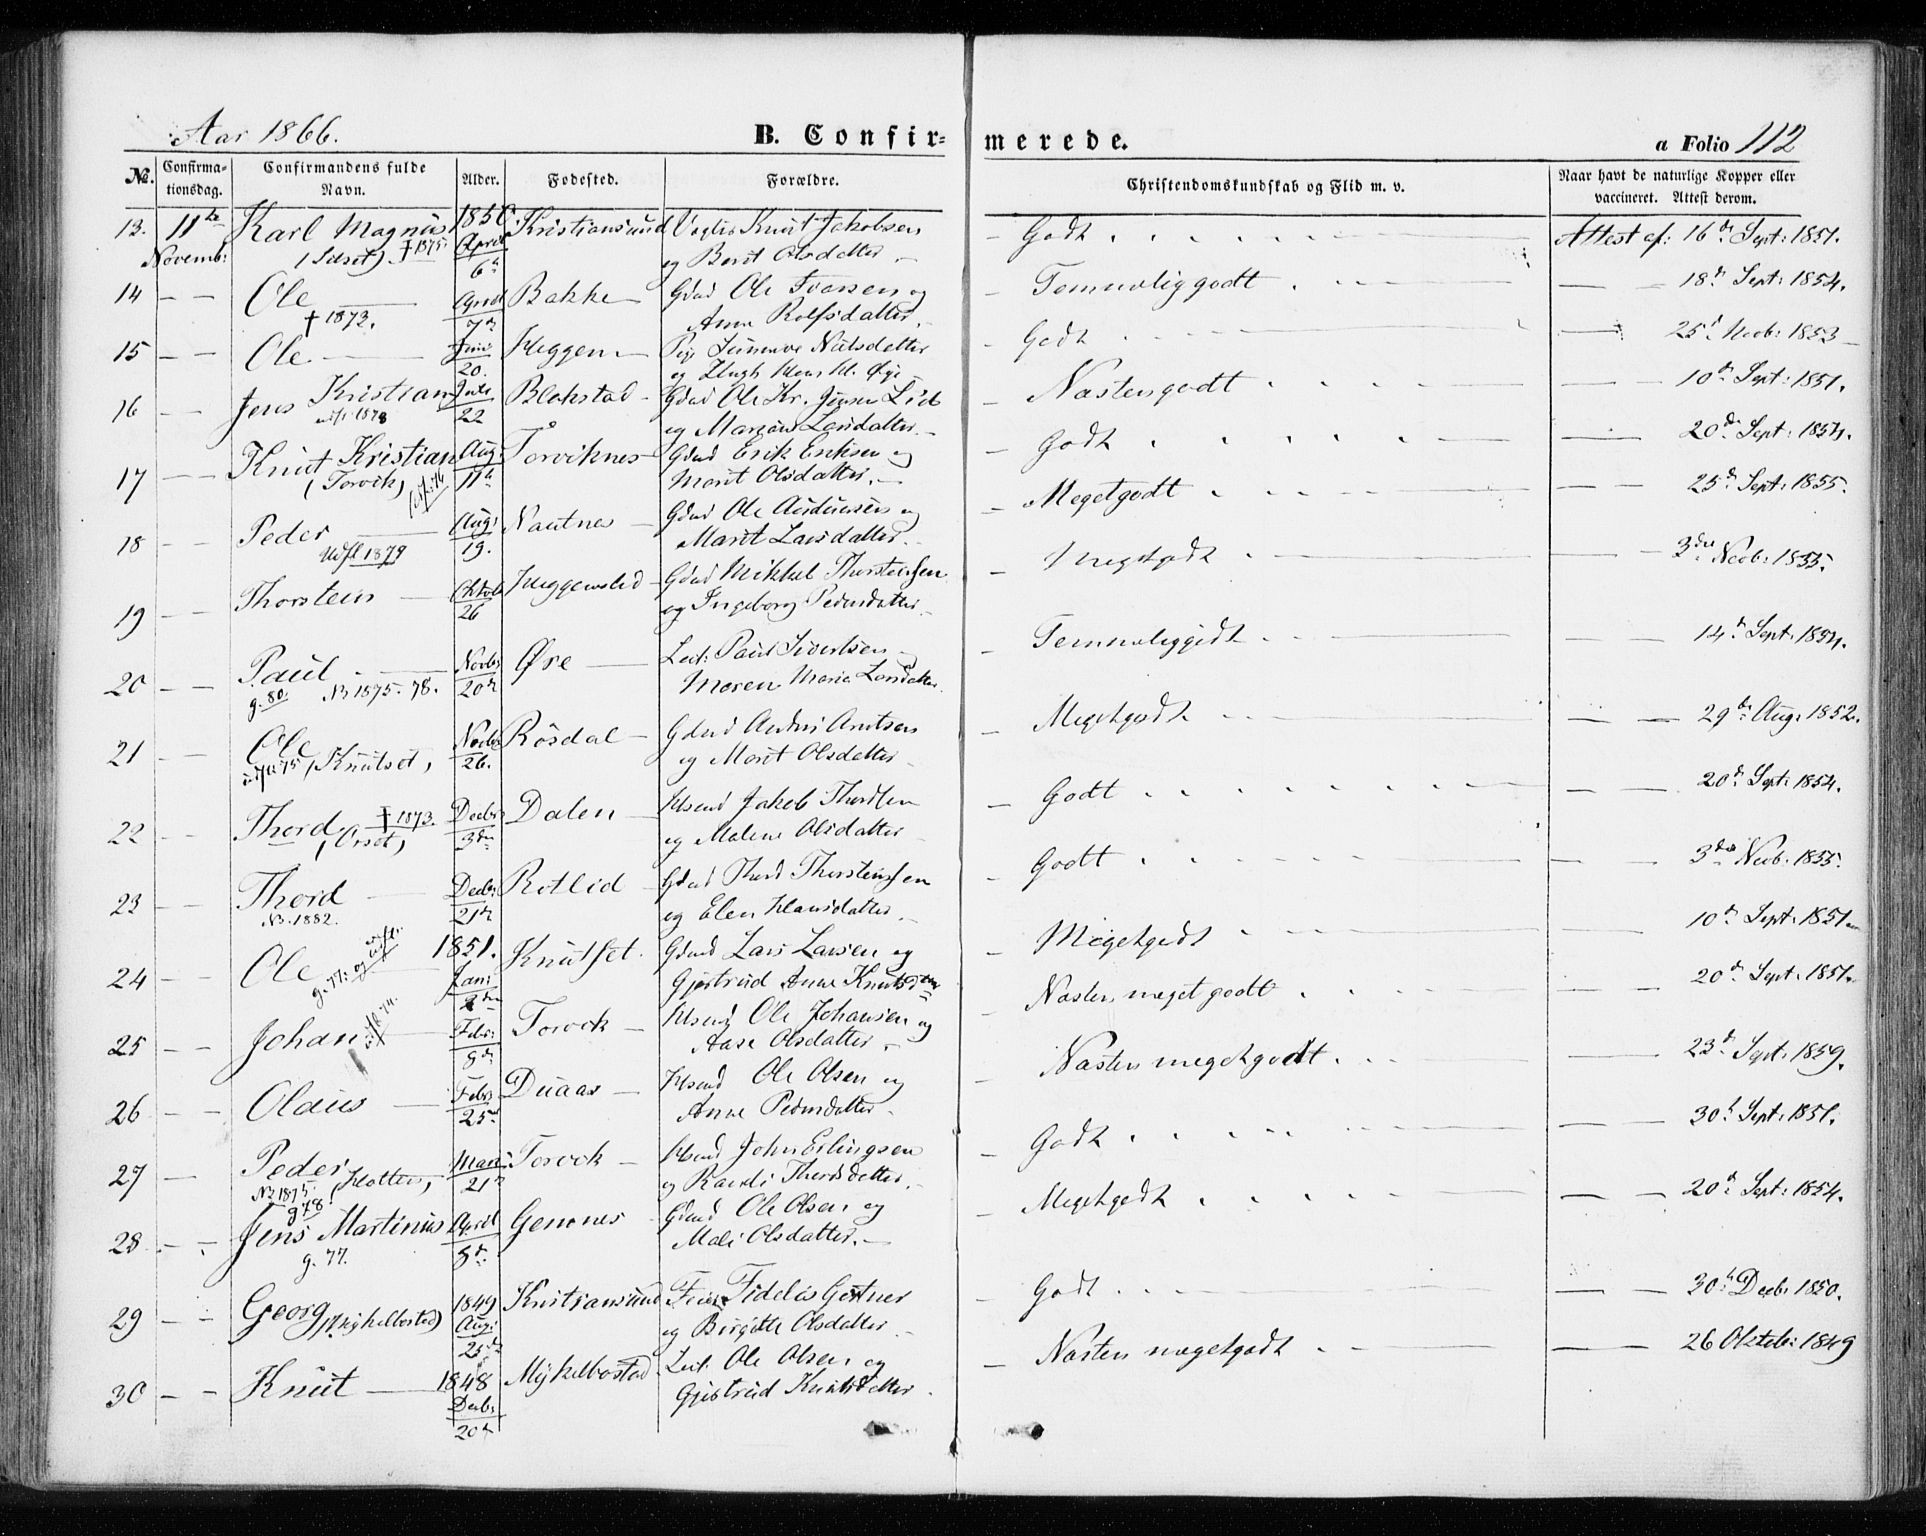 Aar 1866.
B. Confirmerede.
a Folio 112
No. Confirmationsdag. Confirmandens fulde Navn. Alder. Fødested. Forældre. Christendomskundskab og Flid m. v. Naar havt de naturlige Kopper eller vaccineret. Attest derom.
13. 11te Karl Magnus 1850 Kristiansund Knut Jakobsen — Godt Attest af: 16de Sept: 1851.
Novemb: † 1875 April 6te og Berit Olsdatter
14 — — Ole — April 7de Bakke Gdmd Ole Iversen og — Temmelig godt — 18de Sept: 1854.
† 1873. Anne Rolfsdatter
15 — — Ole — Juni 20. Heggem Pige Nilsdatter — Godt — 25de Novb: 1853
16 — — Jens Kristian Juli 22 Blakstad Gdmd Ole Kr. Jensen Lid — Næsten godt — 10de Sept: 1851.
udfl. 1878 og Larsdatter
17 — — Knut Kristian Aug: 11te Torviknes Gdmd Erik Eriksen og — Godt — 20de Sept: 1854.
(Torvik) Marit Olsdatter
18 — — Peder — Aug: 19. Nautnes Gdmd Ole Audunsen og — Megetgodt — 25de Sept: 1855.
Udfl 1879 Marit Larsdatter
19 — — Thorstein — Oktob 26 Gdmd Mikkel Thorsteinsen — Megetgodt — 3die Novb: 1855.
og Ingeborg Pedersdatter
20 — — Paul — Novbr 20de Øre — Paul Sivertsen — Temmeliggodt — 14de Sept: 1854.
g. 80. N 1875. 78. Maren Maria Larsdatter
21 — — Ole Novbr 26. Rösdal — Gdmd Arntsen — Megetgodt — 29de Aug: 1852.
udfl. 75 (Knutset) og Marit Olsdatter
22 — — Thord † 1873. Decbr 3die Dalen — Husmd Jakob Thordsen — Godt — 20de Sept: 1854.
(Orset) og Malene Olsdatter
23 — — Thord — Decbr 21de Rotlid — Gdmd Thord Thorsteinsen — Godt — 3die Novb: 1855.
N. 1882. og Elen Hansdatter
24 — — Ole 1851. Jan: 2den Knutset. Gdmd Lars Larsen og — Megetgodt — 10de Sept: 1851
g. 77: og udfl. Gjertrud Anne Knutsdtr
25 — — Johan Febr: 8de Torvik — Husmd Ole Johansen og — Næsten meget godt — 20de Sept: 1851.
udfl. 74. Aase Olsdatter
26 — — Olaus — Febr 25de Duaas — Husmd Ole Olsen og — Næsten megetgodt — 23de Sept: 1859.
Anne Pedersdatter
27 — Peder Marts 21de Torvik — Husmd John Erlingsen — Godt — 30te Sept: 1851.
N 1875. g 78. og Randi Thordsdatter
28 — — Jens Martinus April 8de Gemnes Gdmd Ole Olsen og — Megetgodt — 20de Sept: 1854.
g. 77. Mali Olsdatter.
29 — — Georg (Mykelbostad) 1849 Aug: 25de Kristiansund Fidelis Gørtner — Godt — 30te Decb: 1850.
og Birgitte Olsdatter
30 — — Knut — 1848 Decbr 20de Mykelbostad Ole Olsen og — Næsten megetgodt — 26 Oktob: 1849
Gjertrud Knutsdatter